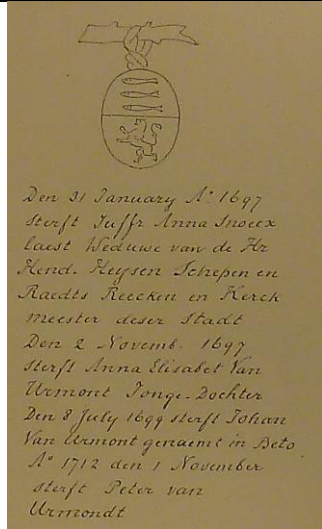 Den 31 January Aº 1697
sterft Juffr Anna Snoecx
laest Weduwe van de Hr
Hend. Heysen Schepen en
Raedts Reecken en Kerck
meester deser Stadt
Den 2 Novemb. 1697
sterft Anna Elisabet Van
Urmont Jonge-Dochter
Den 8 July 1699 sterft Johan
Van Urmont genaemt in Beto
Aº 1712 den 1 November
sterft Peter van
Urmondt